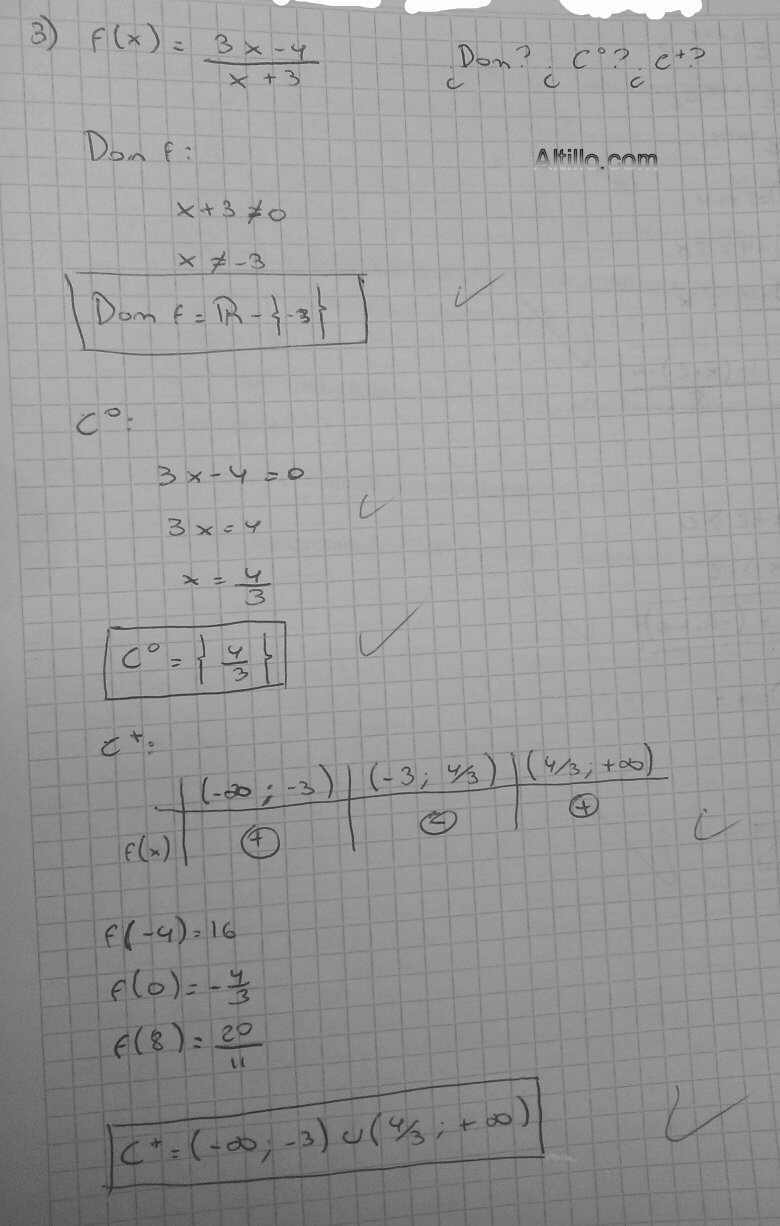 3) f(x) = (3x-4)/(x+3) ¿Dom? ¿C⁰? ¿C⁺?
Dom f:
Altillo.com
x+3≠0
x ≠ -3
Dom f = ℝ - {-3}
C⁰:
3x-4 = 0
3x = 4
x = 4/3
C⁰ = {4/3}
C⁺:
(-∞; -3) | (-3; 4/3) | (4/3; +∞)
f(x) | + | - | +
f(-4) = 16
f(0) = -4/3
f(8) = 20/11
C⁺ = (-∞; -3) ∪ (4/3; +∞)